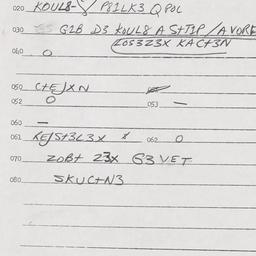 020 KOUL8- P81LK3 QPOL
030 G2B D3 KOUL8 A S+TIP / A VORE
ZOS3Z3X KAC+3N
040 O
050 C+EJXN
052 O 053 —
060 —
061 REJS+3L3X * 062 O
070 ZOB+ 23X G3VET
080 SKUC+N3